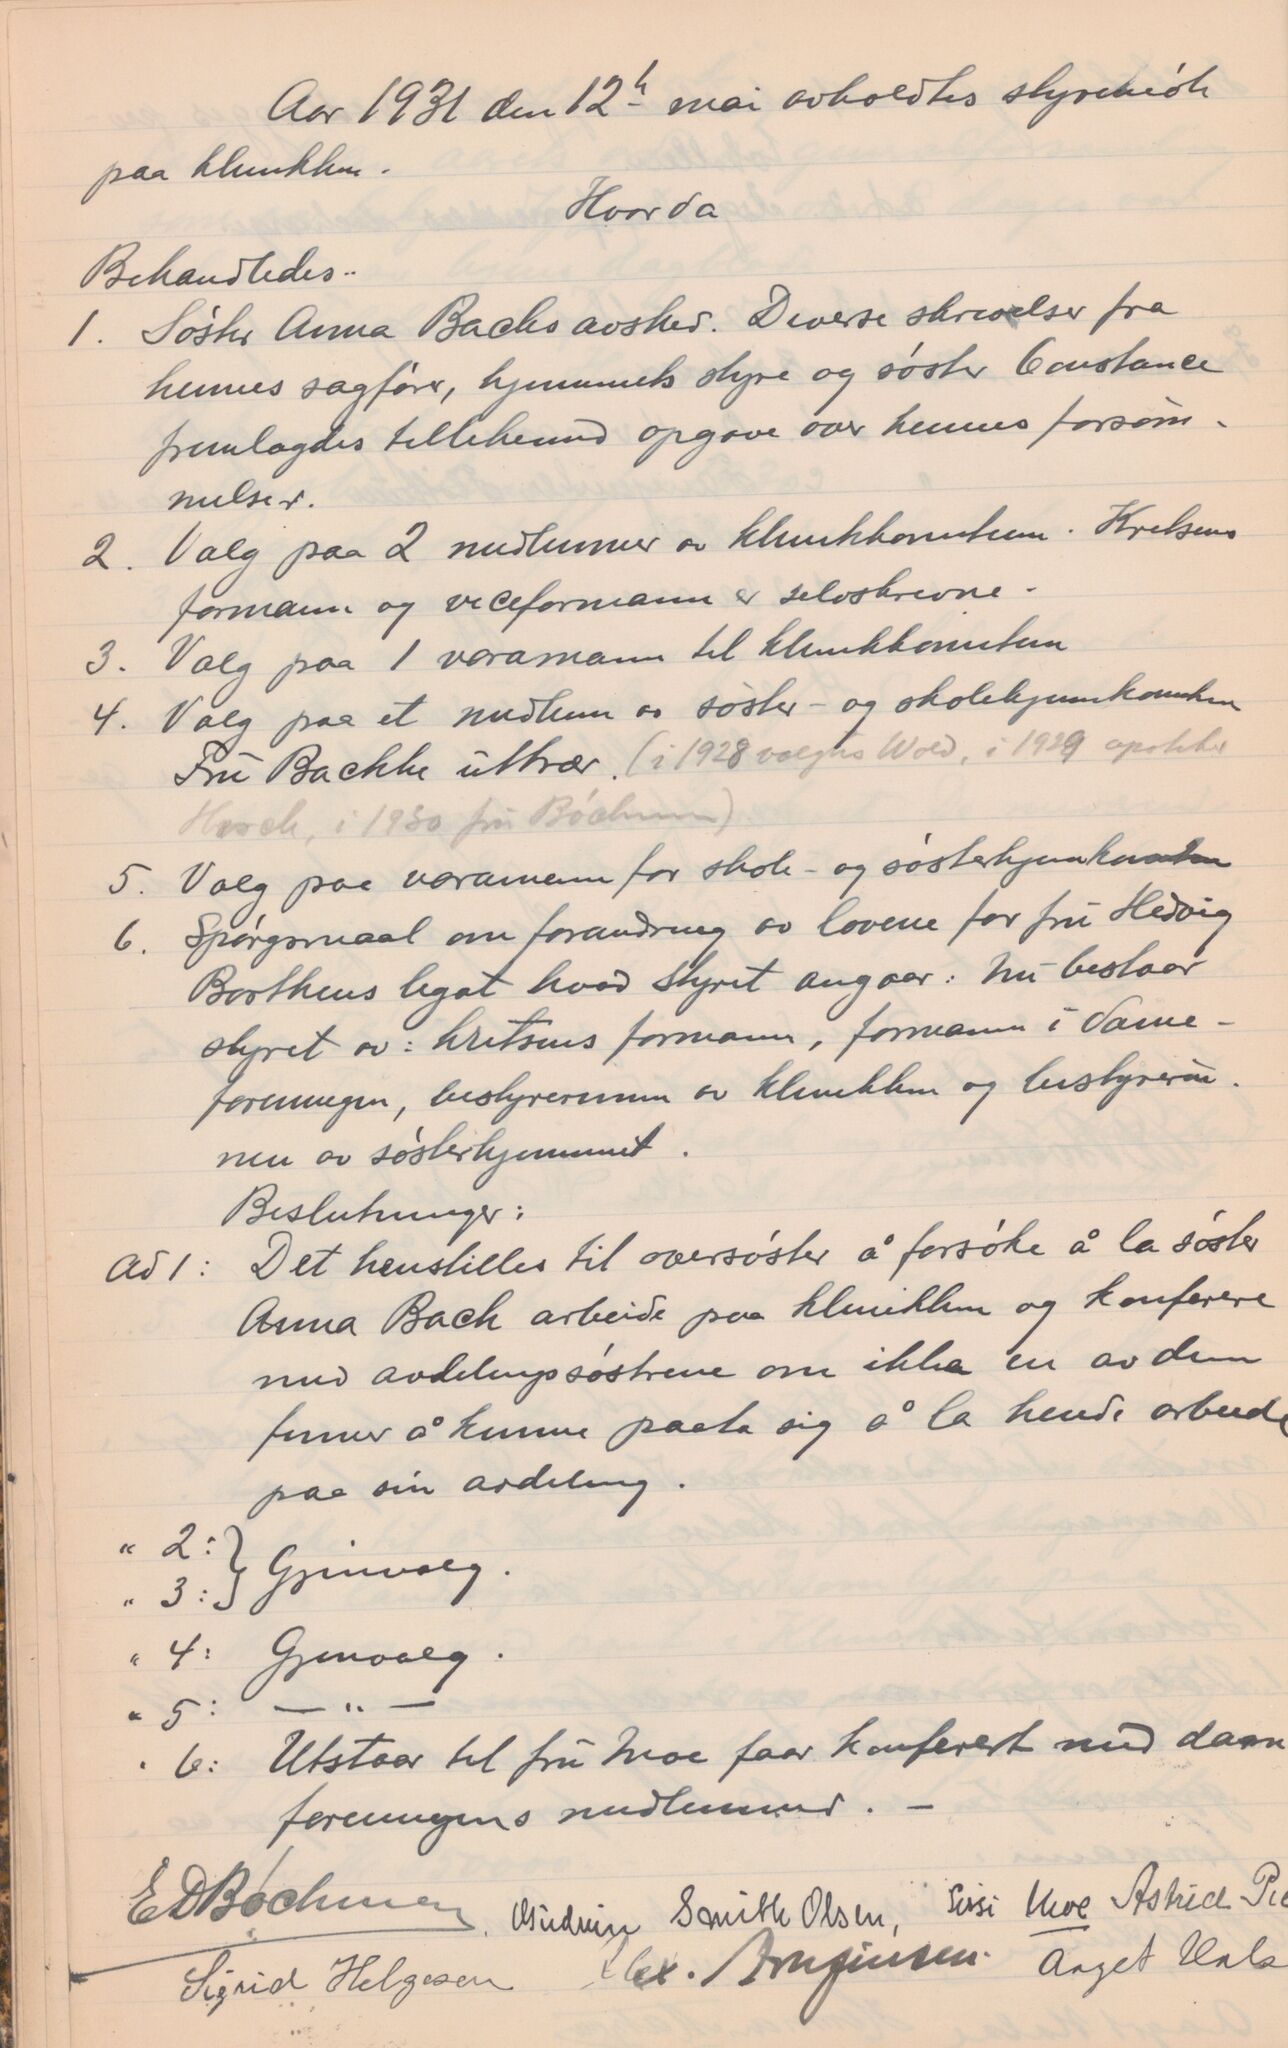 Aar 1931 den 12te mai avholdtes styremöte
paa klinikken.
Hvorda
Behandledes:
1. Söster Anna Bachs avsked. Diverse skrivelser fra
hennes sagförer, hjemmets styre og söster Constance
fremlagdes tillikemed opgave over hennes forsöm-
melser.
2. Valg paa 2 medlemmer av klinikkomiteen. Kretsens
formann og viceformann er selvskrevne.
3. Valg paa 1 varamann til klinikkomiteen
4. Valg paa et medlem av söster- og skolehjemkomiteen
Frü Backke uttrær. (i 1928 valgtes Wold, i 1929 apoteker
Horch, i 1930 frü Böchman)
5. Valg paa varamann for skole- og sösterhjemkomiteen
6. Spörgsmaal om forandring av lovene for frü Hedvig
Borthens legat hvad styret angaar: Nü bestaar
styret av: kretsens formann, formann i dame-
foreningen, bestyrerinnen av klinikken og bestyrerin-
nen av sösterhjemmet.
Beslutninger:
Ad 1: Det henstilles til oversöster å forsöke å la söster
Anna Bach arbeide paa klinikken og konferere
med avdelingssöstrene om ikke en av dem
finner å kunne paata sig å la hende arbeide
paa sin avdeling.
" 2:
" 3: } Gjenvalg.
" 4: Gjenvalg.
" 5: — " —
" 6: Utstaar til frü Moe faar konferert med dame
foreningens medlemmer. –
E D Böchman, Gudrun Smith Olsen, Sissi Moe Astrid
Sigrid Helgesen Alex. Brynjulfsen. Aagot